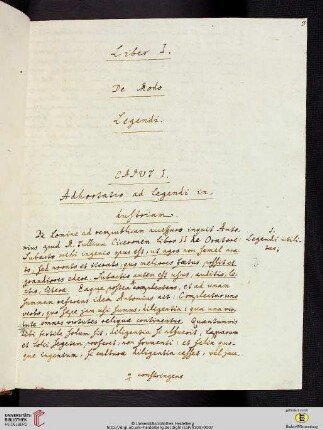 Liber I.
De Modo
Legendi.
CAPUT I.
Adhortatio ad legendi in-
dustriam.
De homine ad rempublicam accessuro inquit Anto-
nius apud M. Tullium Ciceronem libro II de Oratore:
Subacto mihi ingenio opus est, ut agro non semel ara-
to, sed novato et iterato, quo meliores foetus possit et
grandiores edere. Subactio autem est usus, auditio, le-
ctio, literae. Eaque postea complectens, et ad unam
summam referens idem Antonius ait: Complectamur
verbo, quo saepe jam usi sumus, diligentia; qua una vir-
tute omnes virtutes reliquae continentur. Quantumvis
sit, diligentia si abfuerit,
et segetem proferet, non frumenti: et felix quo-
que ingenium, si cultura diligentia cesset, vel
1.
Legendi utili-
tas.
constringens
UNIVERSITÄTS-
BIBLIOTHEK
HEIDELBERG
© Universitätsbibliothek Heidelberg